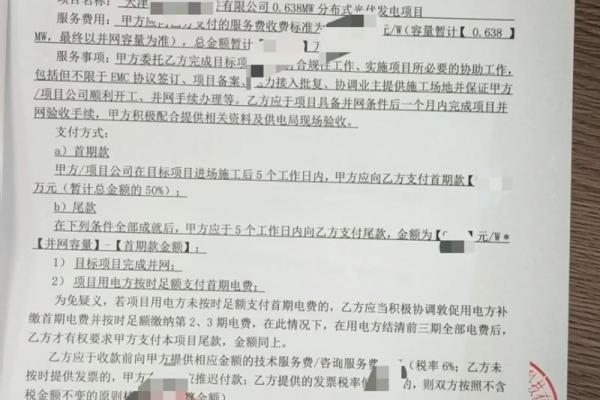 项目名称：天津 有限公司 0.638MW 分布式光伏发电项目
服务费用：甲方应向乙方支付的服务费收费标准为 元/W(容量暂计【 0.638 】
MW，最终以并网容量为准），总金额暂计【
服务事项：甲方委托乙方完成目标项 合规性工作、实施项目所必要的协助工作，
包括但不限于 EMC 协议签订、项目备案、电力接入批复、协调业主提供施工场地并保证甲方
/项目公司顺利开工、并网手续办理等。乙方应于项目具备并网条件后一个月内完成项目并
网验收手续，甲方积极配合提供相关资料及供电局现场验收。
支付方式：
a）首期款
甲方/项目公司在目标项目进场施工后 5 个工作日内，甲方应向乙方支付首期款【
万元（暂计总金额的 50%）；
b）尾款
在下列条件全部成就后，甲方应于 5 个工作日内向乙方支付尾款，金额为【 元/W*
【并网容量】-【首期款金额】：
1） 目标项目完成并网；
2） 项目用电方按时足额支付首期电费；
为免疑义，若项目用电方未按时足额支付首期电费的，乙方应当积极协调敦促用电方补
缴首期电费并按时足额缴纳第 2、3 期电费，在此情况下，在用电方结清前三期全部电费后，
乙方才有权要求甲方支付本项目尾款，金额同上。
乙方应于收款前向甲方提供相应金额的技术服务费/咨询服务费 （税率 6%；乙方未
按时提供发票的，甲方 推迟付款；乙方提供的发票税率 的，则双方按照不含
税金额不变的原则 金额）